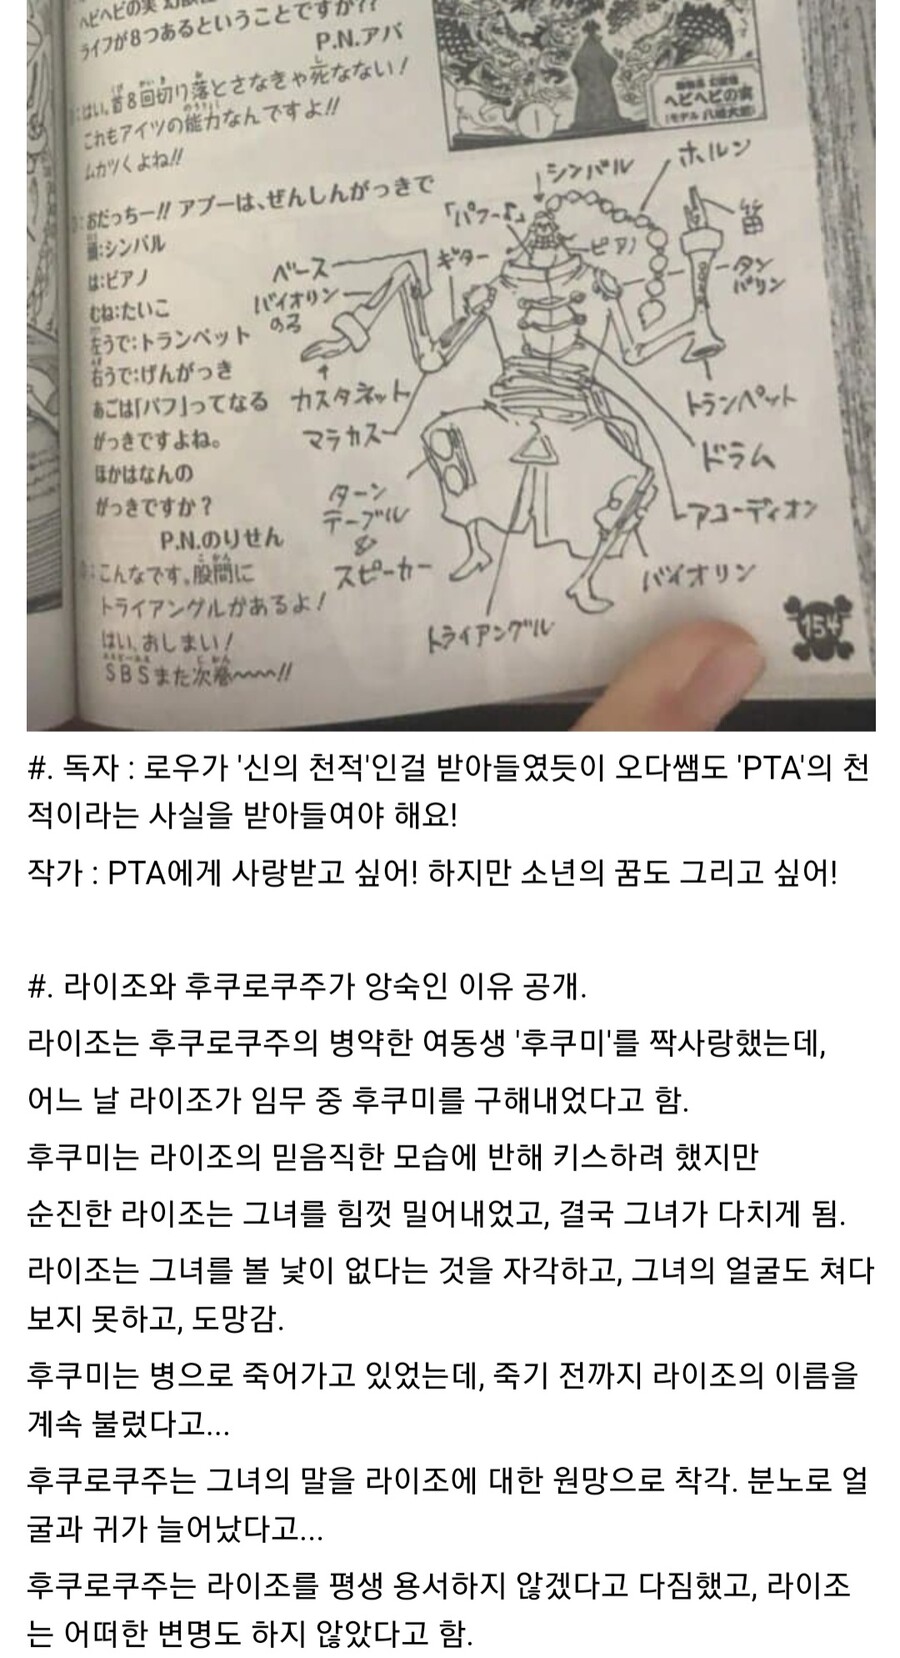 ライフが8つあるということですか??
P.N.アバ
はい。首8回切り落とさなきゃ死なない!
これもアイツの能力なんですよ!!
ムカツくよね!!
ヘビヘビの実
おだっちー!! アプーは、ぜんしんがっきで
頭:シンバル
は:ピアノ
むね:たいこ
左うで:トランペット
右うで:げんがっき
あごは「パフ」ってなる
がっきですよね。
ほかはなんの
がっきですか?
P.N.のりせん
こんなです。股間に
トライアングルがあるよ!
はい、おしまい!
SBSまた次巻〜〜〜!!
シンバル
ホルン
笛
ピアノ
ギター
ベース
バイオリン
のろ
カスタネット
マラカス
タンバリン
トランペット
ドラム
アコーディオン
ターン
テーブル
&
スピーカー
バイオリン
トライアングル
154
#. 독자 : 로우가 '신의 천적'인걸 받아들였듯이 오다쌤도 'PTA'의 천
적이라는 사실을 받아들여야 해요!
작가 : PTA에게 사랑받고 싶어! 하지만 소년의 꿈도 그리고 싶어!
#. 라이조와 후쿠로쿠주가 앙숙인 이유 공개.
라이조는 후쿠로쿠주의 병약한 여동생 '후쿠미'를 짝사랑했는데,
어느 날 라이조가 임무 중 후쿠미를 구해내었다고 함.
후쿠미는 라이조의 믿음직한 모습에 반해 키스하려 했지만
순진한 라이조는 그녀를 힘껏 밀어내었고, 결국 그녀가 다치게 됨.
라이조는 그녀를 볼 낯이 없다는 것을 자각하고, 그녀의 얼굴도 쳐다
보지 못하고, 도망감.
후쿠미는 병으로 죽어가고 있었는데, 죽기 전까지 라이조의 이름을
계속 불렀다고...
후쿠로쿠주는 그녀의 말을 라이조에 대한 원망으로 착각. 분노로 얼
굴과 귀가 늘어났다고...
후쿠로쿠주는 라이조를 평생 용서하지 않겠다고 다짐했고, 라이조
는 어떠한 변명도 하지 않았다고 함.